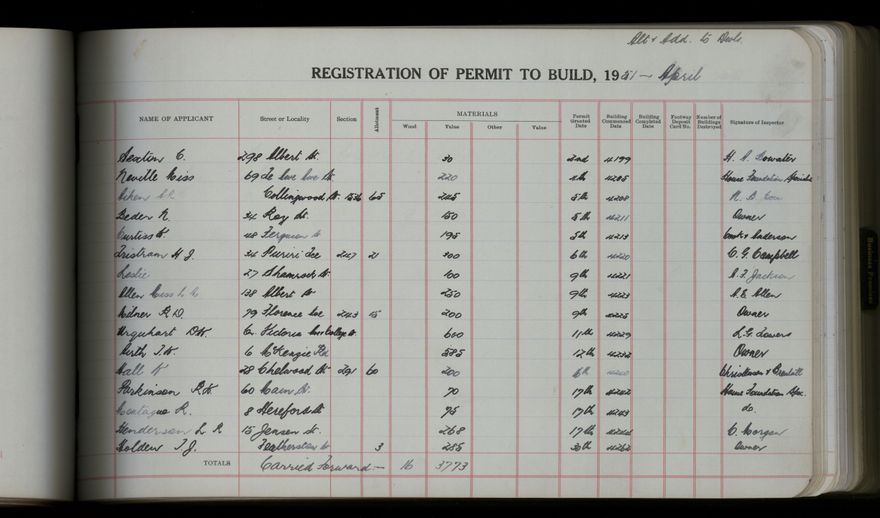 Alt & Add. to Dwls.
REGISTRATION OF PERMIT TO BUILD, 1951 - April
NAME OF APPLICANT Street or Locality Section Allotment MATERIALS Permit Granted Date Building Commenced Date Building Completed Date Footway Deposit Card No. Number of Buildings Destroyed Signature of Inspector
Wood Value Other Value
Sexton C. 298 Albert St. 30 2nd 4199 H. A. Bowater
Neville Miss 69 Te Awe Awe St. 220 4th 4205 House Foundation
Collingwood St. 65 245 5th 4208
Beder R. 34 Roy St. 50 5th 4211 Owner
Curtiss W. 48 Ferguson St 195 5th 4213 Cook & Anderson
Tristram H J. 34 Puriri Tce 247 21 300 6th 4220 C. G. Campbell
Leslie 27 Shamrock St. 100 9th 4221 A. J. Jackson
Allen Miss 138 Albert St 250 9th 4223 A. E. Allen
Milner R D. 79 Florence Ave 243 15 200 9th 4225 Owner
Urquhart D.W. Cr. Victoria Ave College St. 600 11th 4229 L. G. Lowers
Firth J. W. 6 McKenzie Rd 585 12th 4232 Owner
Hall W 28 Chelwood St 291 60 200 6th Christensen &
Parkinson R.W. 60 Main St. 70 17th 4242 House Foundation
Montague R. 8 Hereford St 95 17th 4243 do.
Henderson L R 15 Jensen St. 268 17th C. Morgan
Holden T. J. Featherston St 3 255 30th 4262 Owner
TOTALS Carried Forward :- 16 3773